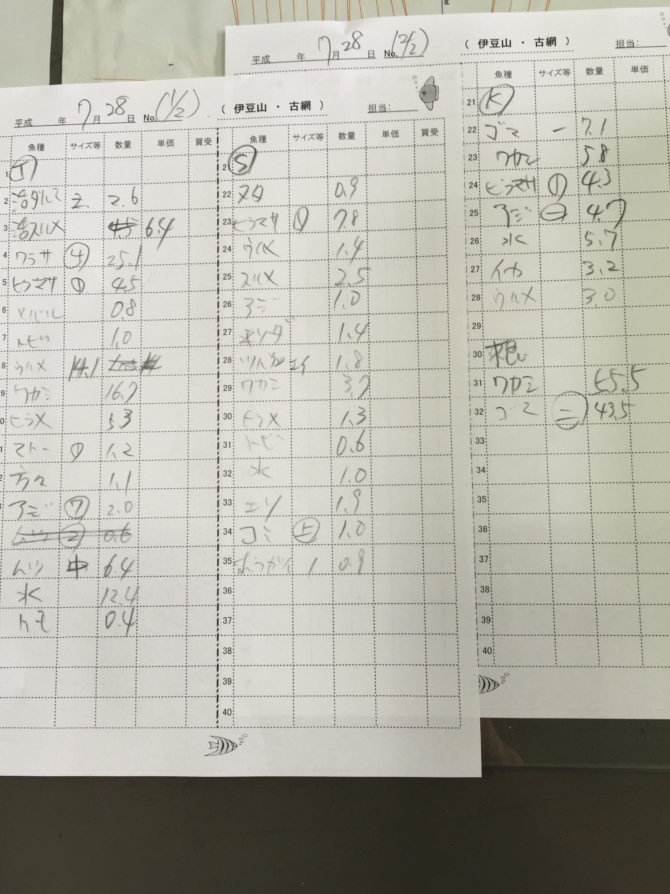 平成 年 7月 28日 No. (1/2) ( 伊豆山 ・ 古網 ) 担当:
魚種 サイズ等 数量 単価 買受
1
2 2.6
3 活スルメ 6.4
4 ワラサ ④ 25.1
5 ヒラマサ ① 4.5
6 メバル 0.8
7 トビ 1.0
8 ウルメ 14.1
9 ワカシ 16.7
ヒラメ 3.3
マトー ① 1.2
方々 1.1
アジ 2.0
ムツ ② 0.6
ムツ 中 6.4
水 12.4
トモ 0.4
魚種 サイズ等 数量 単価 買受
Ⓢ
22 0.9
23 ヒラマサ ① 7.8
24 ウルメ 1.4
25 スルメ 2.5
26 アジ 1.0
27 1.4
28 1.8
29 ワカシ 3.7
30 ヒラメ 1.3
31 トビ 0.6
32 水 1.0
33 1.9
34 ゴミ 1.0
35 1 0.9
36
37
38
39
40
平成 年 7月 28日 No. (2/2) ( 伊豆山 ・ 古網 ) 担当:
魚種 サイズ等 数量 単価
21 Ⓚ
22 ゴマ 一 7.1
23 ワカシ 5.8
24 ヒラマサ ① 4.3
25 アジ 4.7
26 水 5.7
27 イカ 3.2
28 ウルメ 3.0
29
30
31 ワカシ 55.5
32 ゴマ 43.5
33
34
35
36
37
38
39
40